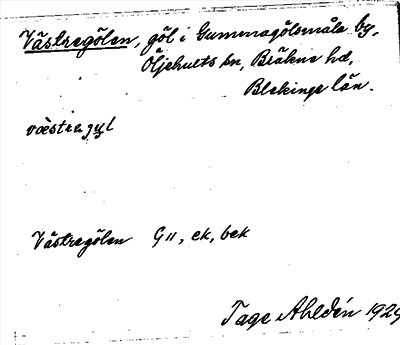 Västregölen, göl i Gummagölsmåla by,
Öljehults sn, Bräkne hd,
Blekinge län.
væstragyl
Västregölen G11, ek, bek
Tage Ahldén 1929